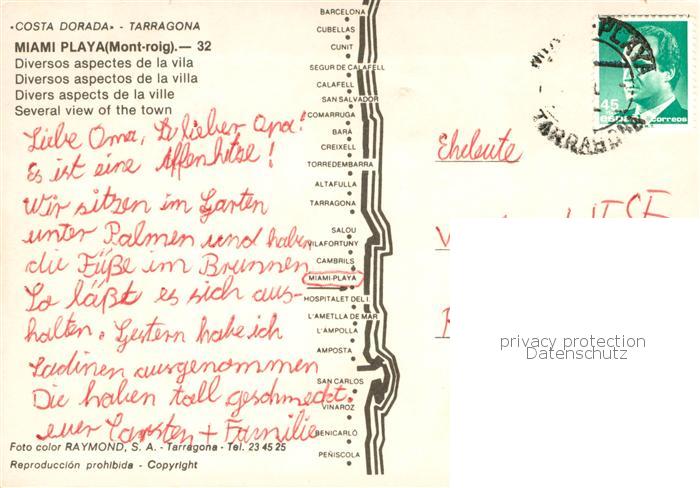 «COSTA DORADA» - TARRAGONA
MIAMI PLAYA (Mont-roig).— 32
Diversos aspectes de la vila
Diversos aspectos de la villa
Divers aspects de la ville
Several view of the town
Liebe Oma, Lieber Opa!
Es ist eine Affenhitze!
Wir sitzen im Garten
unter Palmen und haben
die Füße im Brunnen
So läßt es sich aus-
halten. Gestern habe ich
Sardinen ausgenommen
Die haben toll geschmeckt.
euer Carsten + Familie
Foto color RAYMOND, S. A. - Tarragona - Tel. 23 45 25
Reproducción prohibida - Copyright
BARCELONA
CUBELLAS
CUNIT
SEGUR DE CALAFELL
CALAFELL
SAN SALVADOR
COMARRUGA
BARÁ
CREIXELL
TORREDEMBARRA
ALTAFULLA
TARRAGONA
SALOU
VILAFORTUNY
CAMBRILS
MIAMI-PLAYA
HOSPITALET DEL I.
L'AMETLLA DE MAR
L'AMPOLLA
AMPOSTA
SAN CARLOS
VINAROZ
BENICARLÓ
PEÑISCOLA
45
correos
PLAYA
Eheleute
privacy protection
Datenschutz